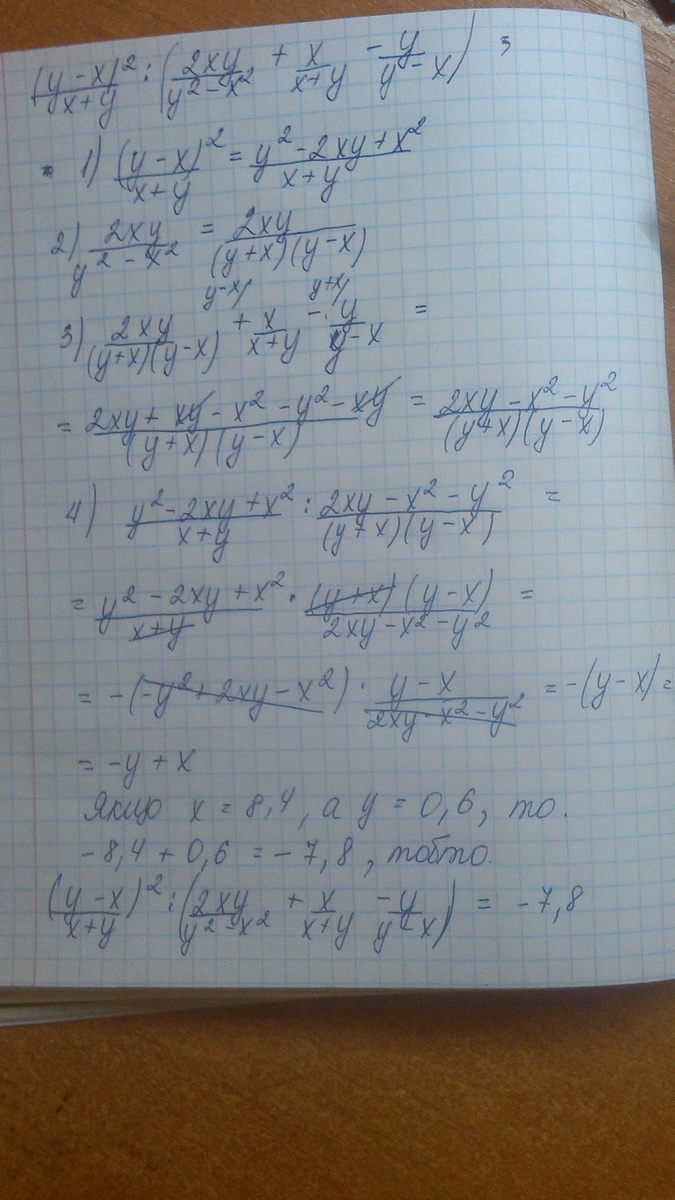 (y-x)²/(x+y) : (2xy/(y²-x²) + x/(x+y) - y/(y-x)) з
1) (y-x)²/(x+y) = (y²-2xy+x²)/(x+y)
2) 2xy/(y²-x²) = 2xy/((y+x)(y-x))
y-x/ y+x/
3) 2xy/((y+x)(y-x)) + x/(x+y) - y/(y-x) =
= (2xy+xy-x²-y²-xy)/((y+x)(y-x)) = (2xy-x²-y²)/((y+x)(y-x))
4) (y²-2xy+x²)/(x+y) : (2xy-x²-y²)/((y+x)(y-x)) =
= (y²-2xy+x²)/(x+y) · ((y+x)(y-x))/(2xy-x²-y²) =
= -(-y²+2xy-x²) · (y-x)/(2xy-x²-y²) = -(y-x) =
= -y+x
Якщо x = 8,4, а y = 0,6, то.
-8,4 + 0,6 = -7,8, тобто.
((y-x)/(x+y))² : (2xy/(y²-x²) + x/(x+y) - y/(y-x)) = -7,8